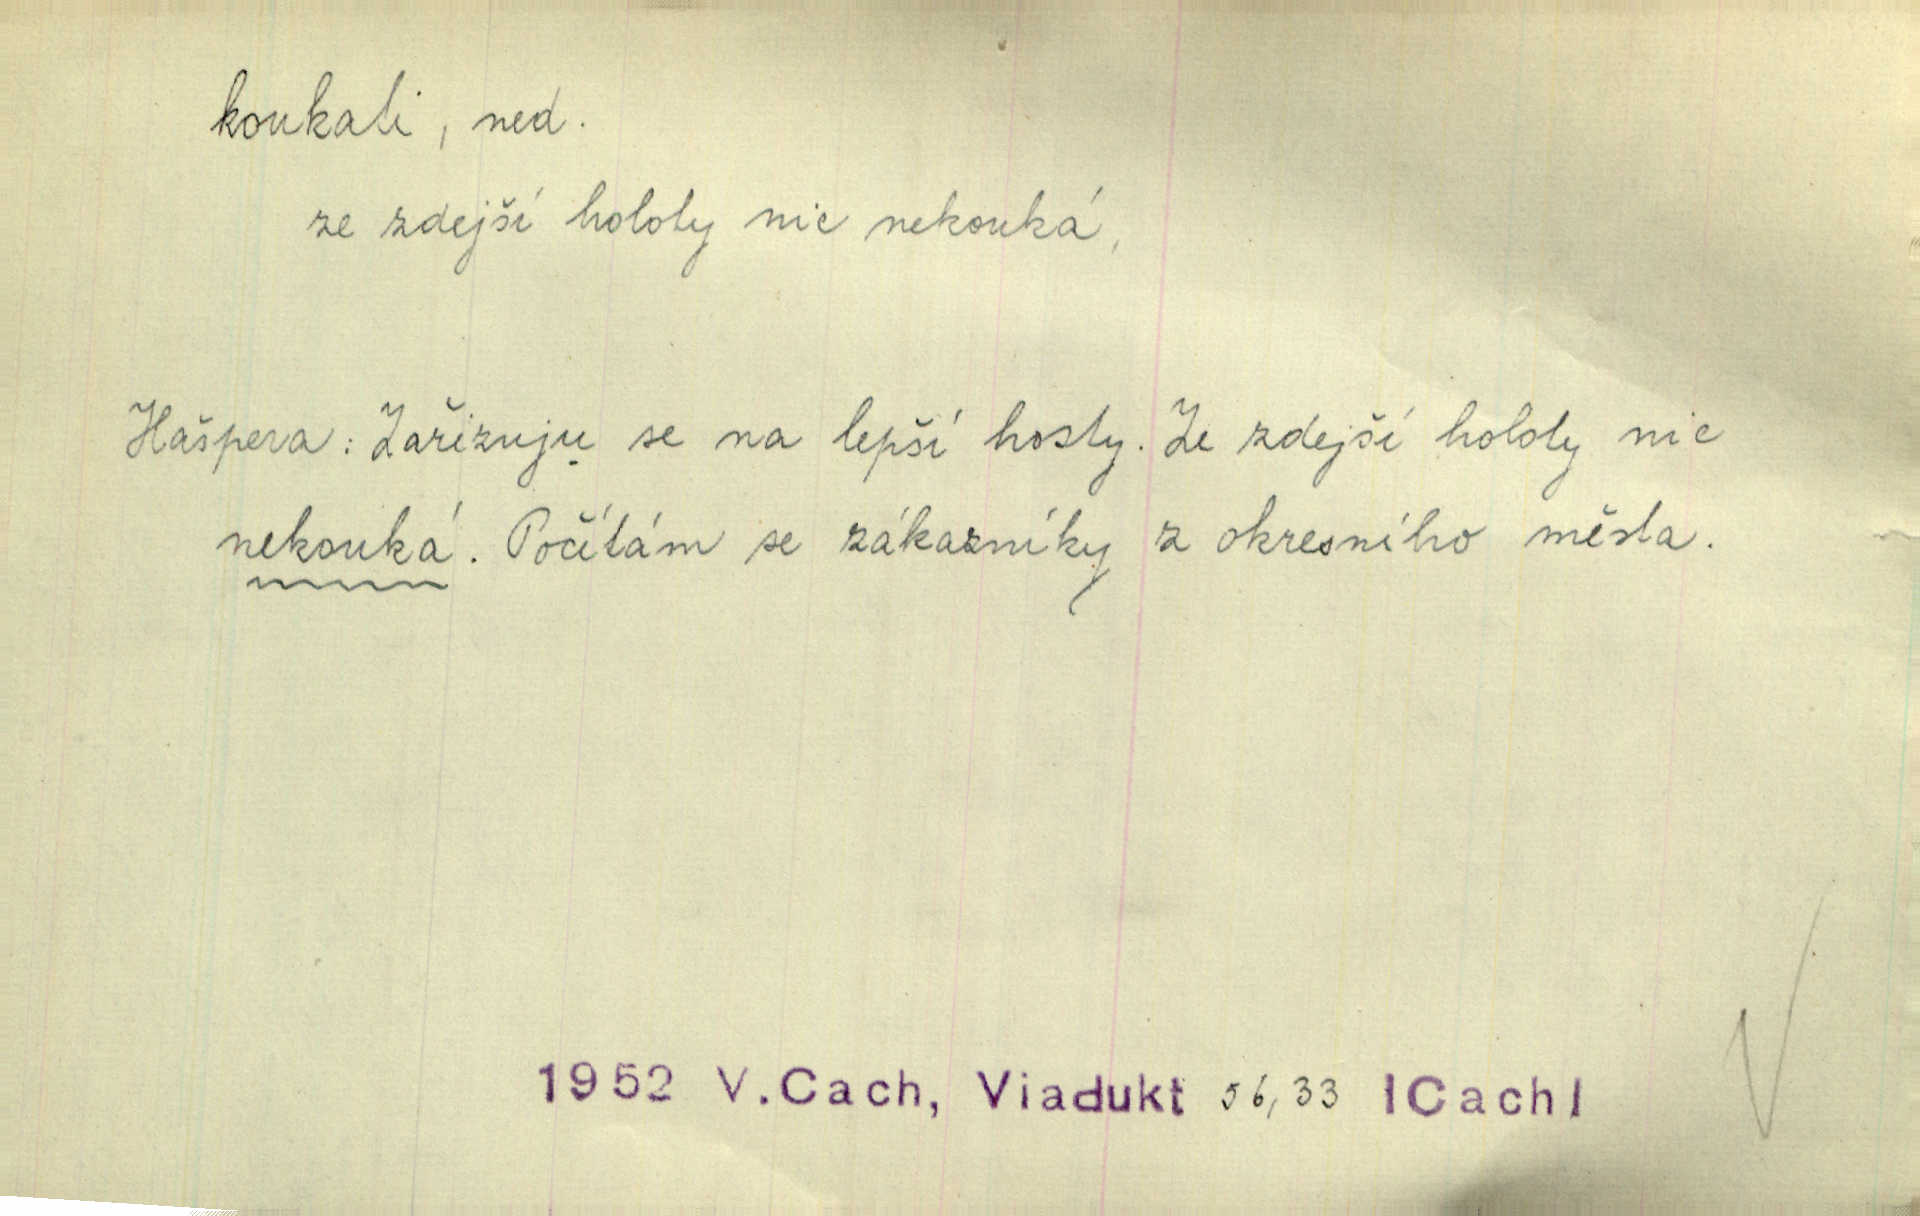 koukati, ned.
ze zdejší holoty nic nekouká,
Hašpera: Zařizuju se na lepší hosty. Ze zdejší holoty nic
nekouká. Počítám se zákazníky z okresního města.
1952 V.Cach, Viadukt 56,33 |Cach|